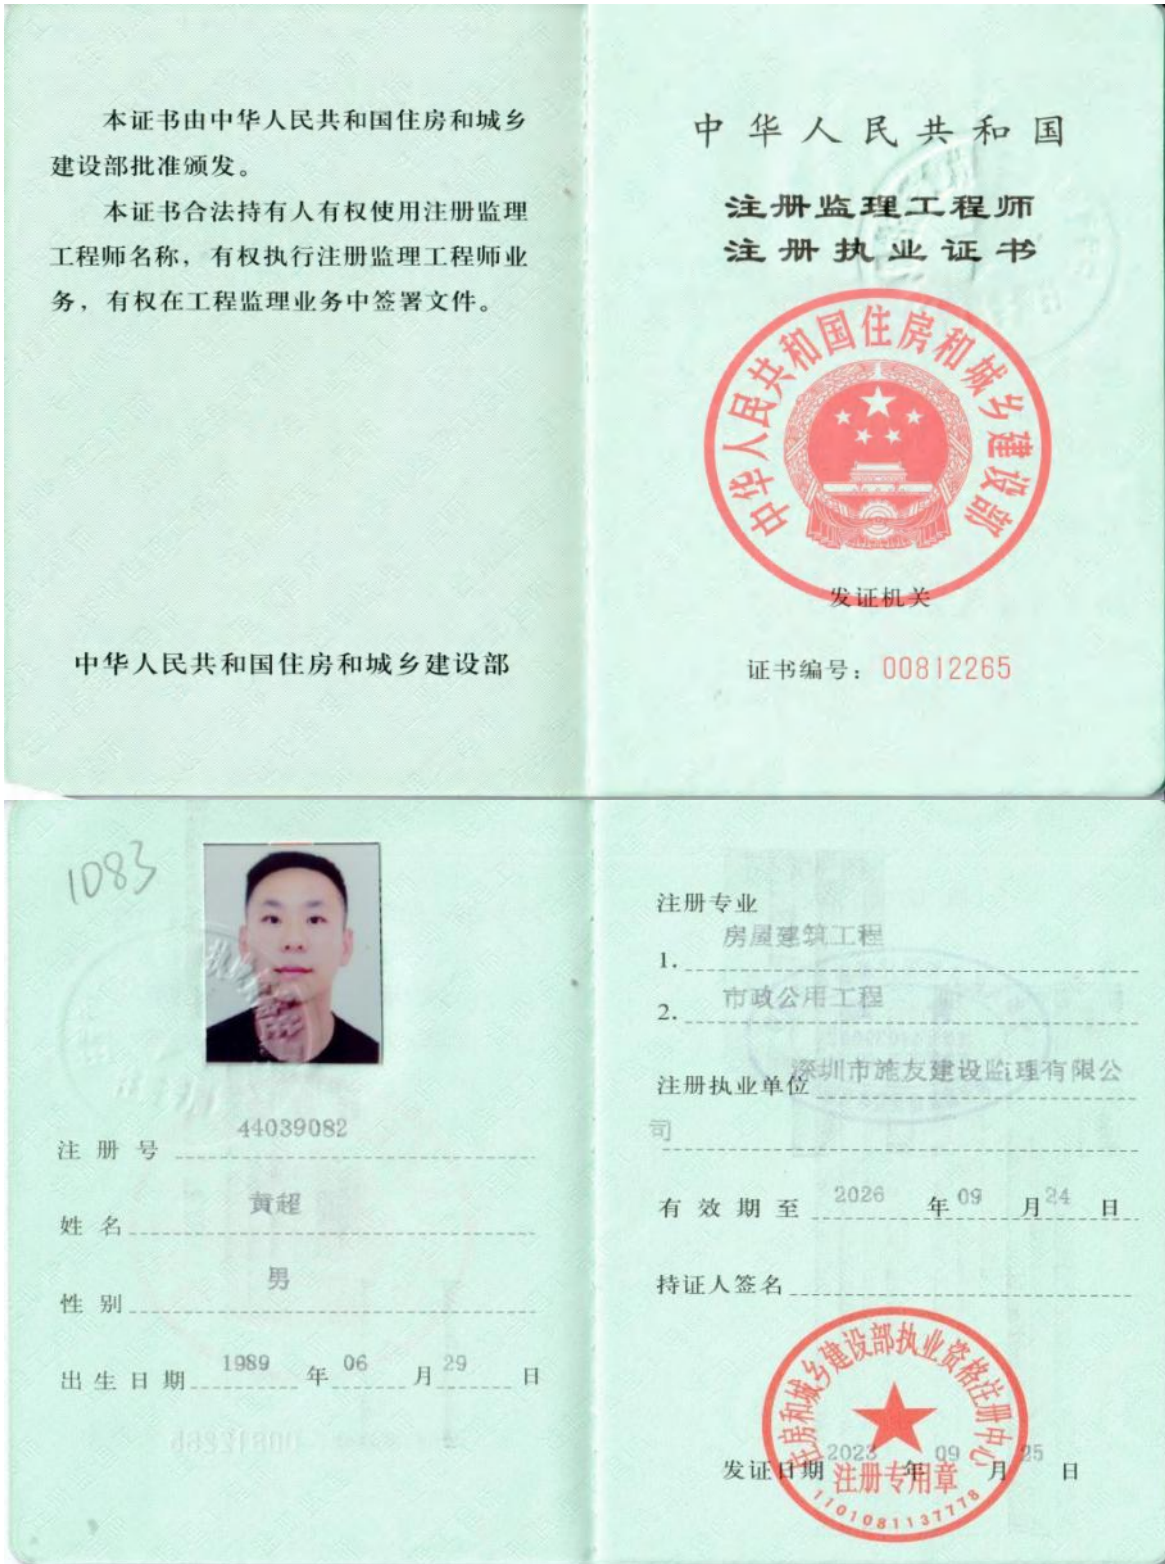 本证书由中华人民共和国住房和城乡
建设部批准颁发。
本证书合法持有人有权使用注册监理
工程师名称，有权执行注册监理工程师业
务，有权在工程监理业务中签署文件。
中华人民共和国住房和城乡建设部
中华人民共和国
注册监理工程师
注册执业证书
中华人民共和国住房和城乡建设部
发证机关
证书编号：00812265
1083
注册号 44039082
姓名 黄超
性别 男
出生日期 1989 年 06 月 29 日
注册专业
1. 房屋建筑工程
2. 市政公用工程
注册执业单位 深圳市施友建设监理有限公
司
有效期至 2026 年 09 月 24 日
持证人签名
住房和城乡建设部执业资格注册中心
发证日期 2023 年 09 月 25 日
注册专用章
1101081137778